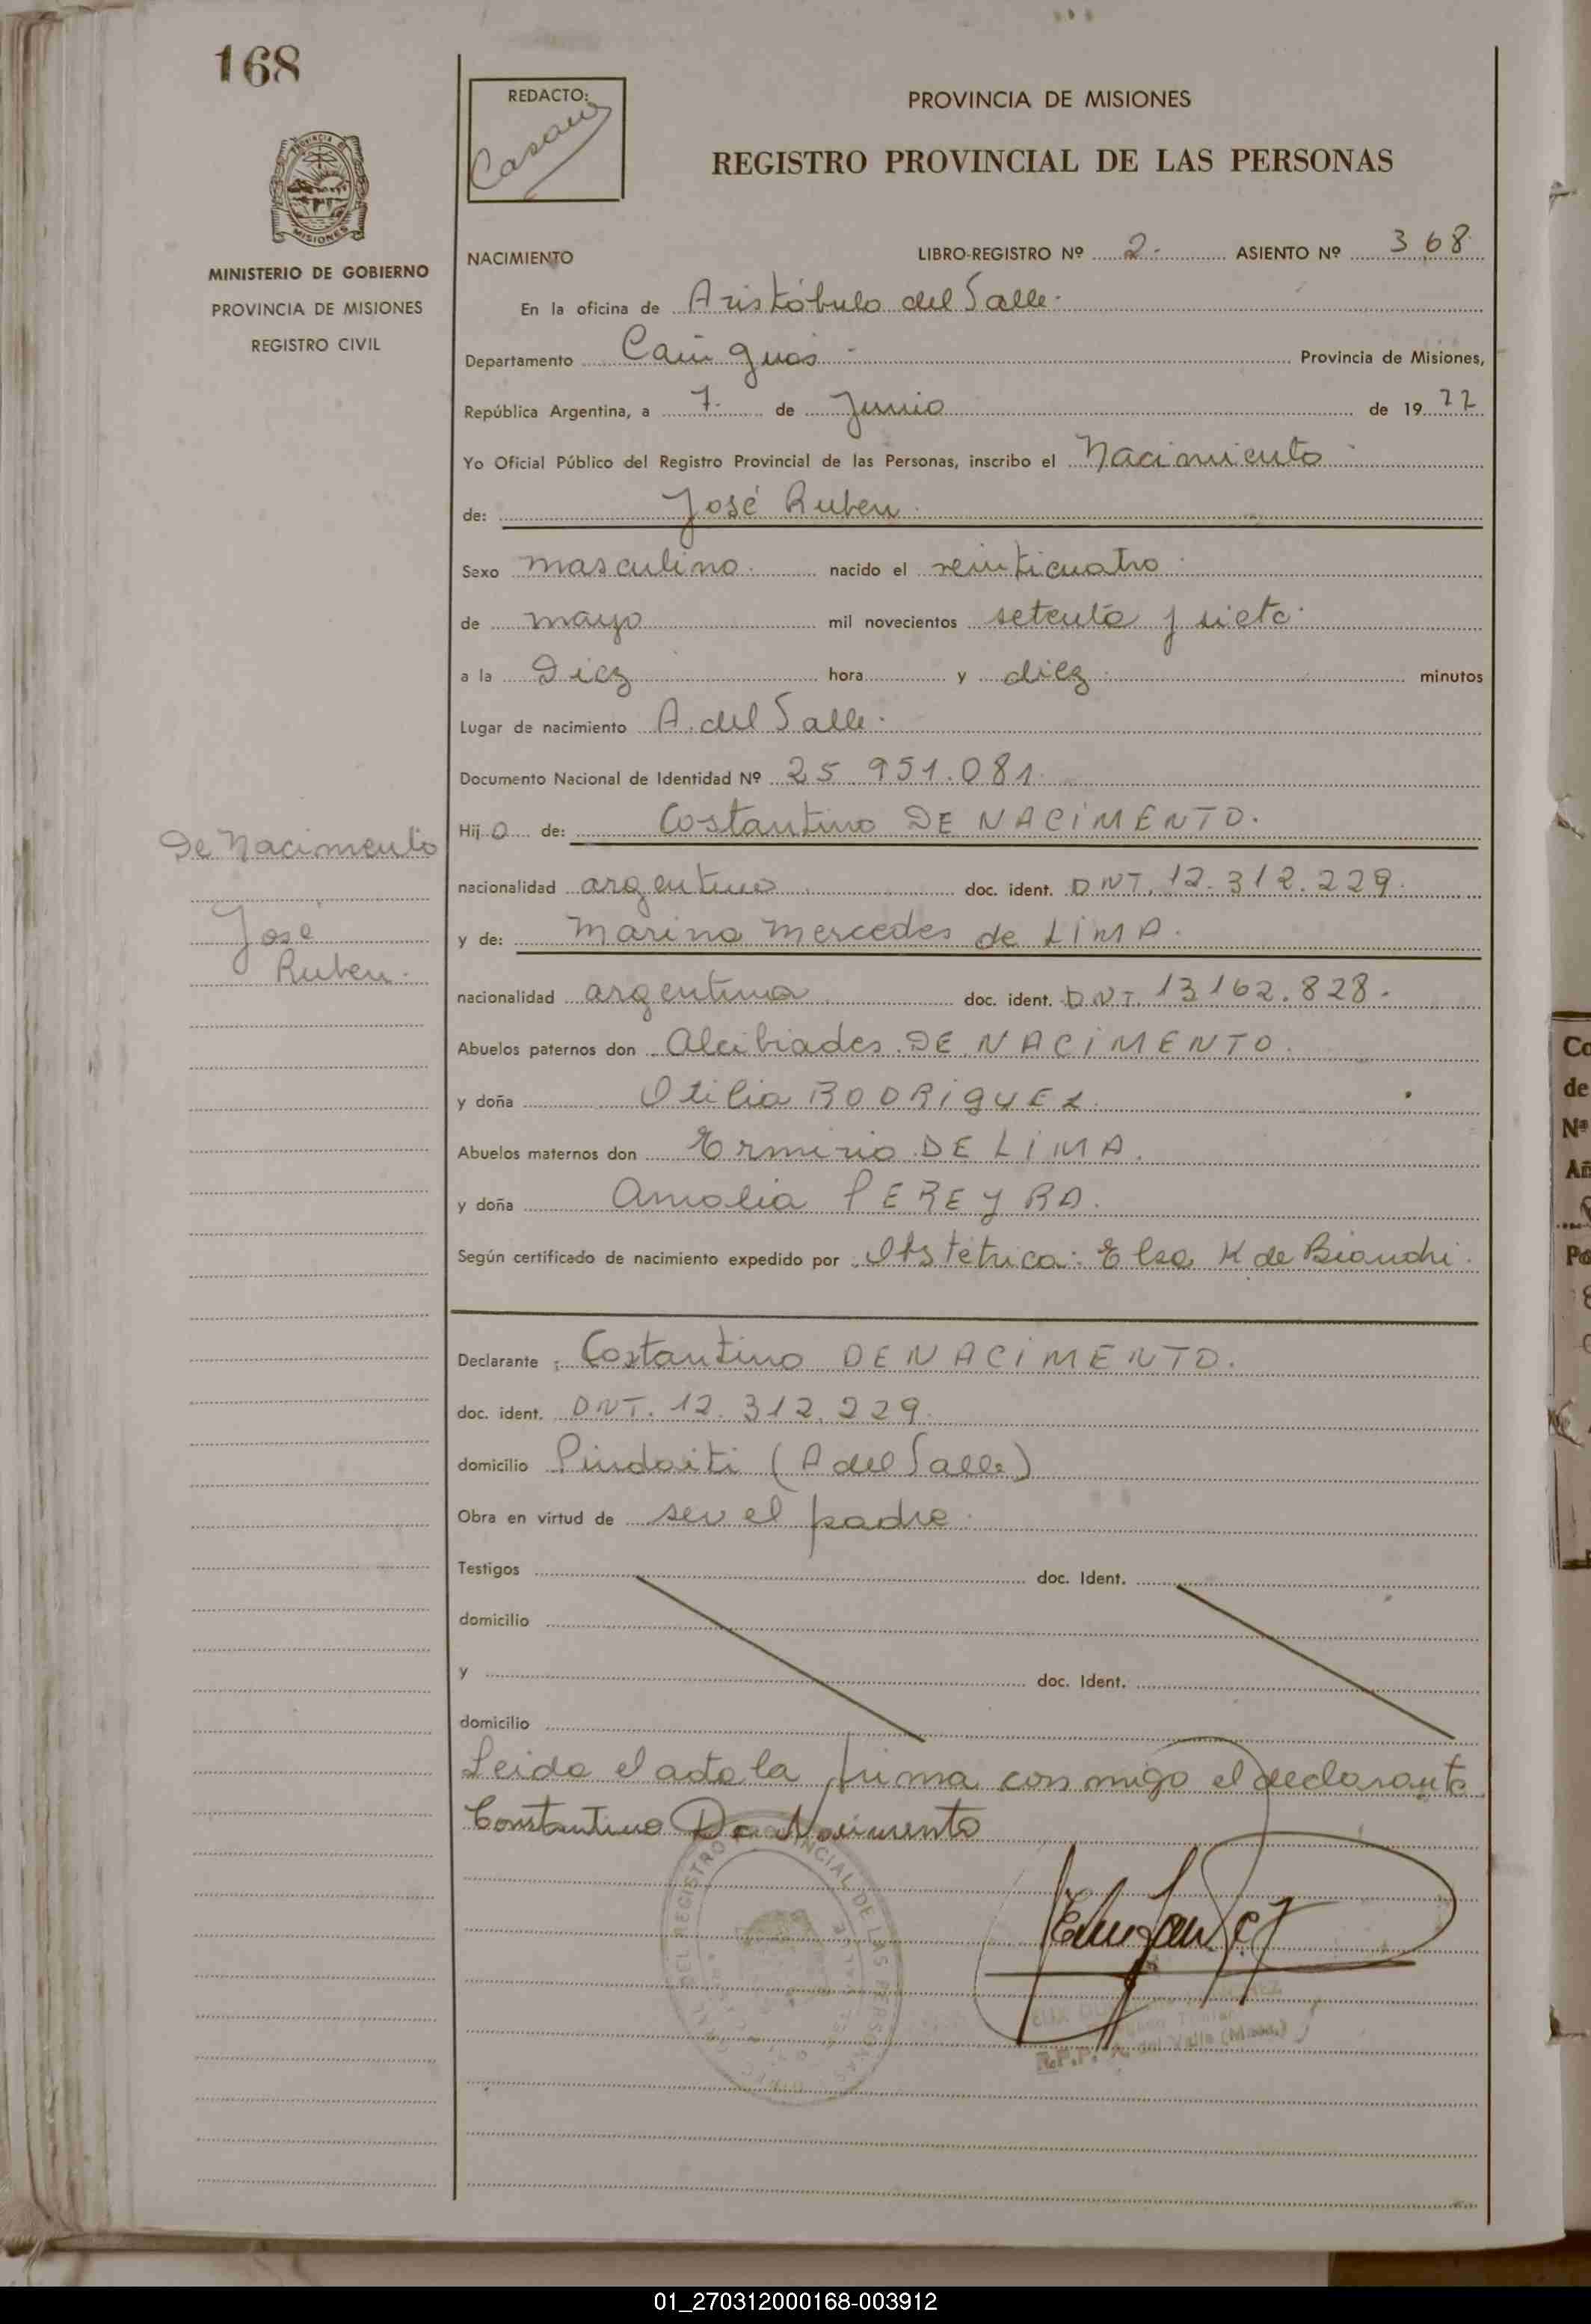 168
PROVINCIA DE
MISIONES
MINISTERIO DE GOBIERNO
PROVINCIA DE MISIONES
REGISTRO CIVIL
REDACTO:
PROVINCIA DE MISIONES
REGISTRO PROVINCIAL DE LAS PERSONAS
NACIMIENTO LIBRO-REGISTRO Nº 2.- ASIENTO Nº 368
En la oficina de Aristóbulo del Valle.
Departamento Cainguás - Provincia de Misiones,
República Argentina, a 7. de Junio de 19 77
Yo Oficial Público del Registro Provincial de las Personas, inscribo el Nacimiento
de: José Ruben.
Sexo masculino. nacido el veinticuatro
de mayo mil novecientos setenta y siete.
a la Diez hora y diez minutos
Lugar de nacimiento A. del Valle.
Documento Nacional de Identidad Nº 25.951.081.
Hij o de: Costantino DE NACIMENTO.
De Nacimento
José
Ruben.
nacionalidad argentino doc. ident. DNI. 12.312.229.
y de: Marina Mercedes de LIMA.
nacionalidad argentina doc. ident. DNI. 13162.828.
Abuelos paternos don Alcibiades DE NACIMENTO.
y doña Otilia RODRIGUEZ.
Abuelos maternos don Ermirio DE LIMA.
y doña Amalia PEREYRA.
Según certificado de nacimiento expedido por Obstétrica: Elsa K de Bianchi.
Declarante : Costantino DE NACIMENTO.
doc. ident. DNI. 12.312.229.
domicilio Pindaiti (A del Valle)
Obra en virtud de ser el padre.
Testigos doc. Ident.
domicilio
y doc. Ident.
domicilio
Leida el acta la firma con migo el declarante
Constantino De Nacimento
DEL REGISTRO PROVINCIAL DE LAS PERSONAS
R.P.P. A. del Valle (Mnes.)
Co
de
Nº
Añ
Po
01_270312000168-003912